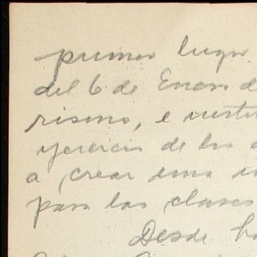 primer lugar
del 6 de Enero d
rismo, e insti
ejercicio de los d
a crear una
para las clases
Desde ha